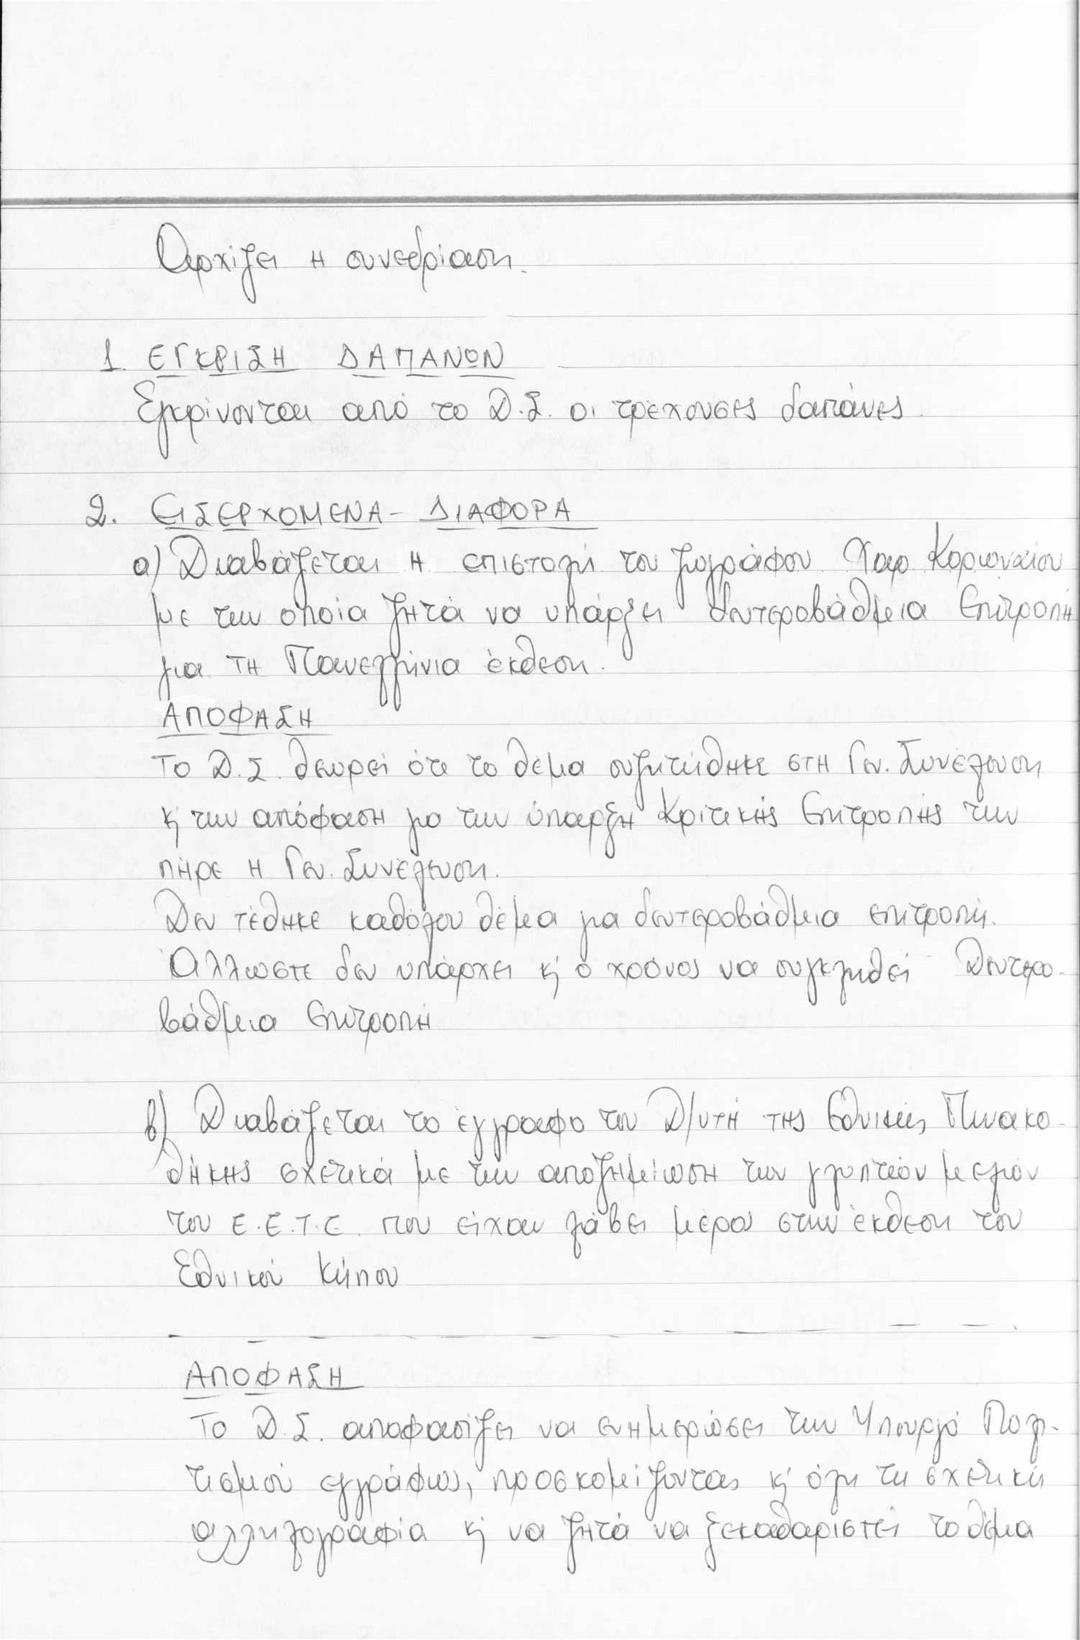 Αρχίζει η συνεδρίαση.
1. ΕΓΚΡΙΣΗ ΔΑΠΑΝΩΝ
Εγκρίνονται από το Δ.Σ. οι τρέχουσες δαπάνες.
2. ΕΙΣΕΡΧΟΜΕΝΑ - ΔΙΑΦΟΡΑ
α) Διαβάζεται η επιστολή του ζωγράφου
με την οποία ζητά να υπάρξει δευτεροβάθμεια Επιτροπή
για τη Πανελλήνια έκθεση.
ΑΠΟΦΑΣΗ
Το Δ.Σ. θεωρεί ότι το θέμα συζητήθηκε στη Γεν. Συνέλευση
κ' την απόφαση για την ύπαρξη Κριτικής Επιτροπής την
πήρε η Γεν. Συνέλευση.
Δεν τέθηκε καθόλου θέμα για δευτεροβάθμια επιτροπή.
Αλλωστε δεν υπάρχει κ' ο χρόνος να συγκληθεί Δευτερο-
βάθμεια Επιτροπή
β) Διαβάζεται το έγγραφο του Δ/υτή της Εθνικής Πινακο-
θήκης σχετικά με την αποζημείωση των γλυπτών μελών
του Ε.Ε.Τ.Ε. που είχαν λάβει μέρος στην έκθεση του
Εθνικού Κήπου
ΑΠΟΦΑΣΗ
Το Δ.Σ. αποφασίζει να ενημερώσει την Υπουργό Πολι-
τισμού εγγράφως, προσκομίζοντας κ' όλη τη σχετική
αλληλογραφία κ' να ζητά να ξεκαθαριστεί το θέμα